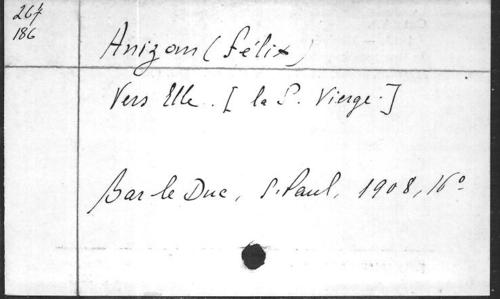 267
186
Anizan (Félix)
Vers Elle. [la S. Vierge.]
Bar le Duc, S. Paul, 1908, 16°